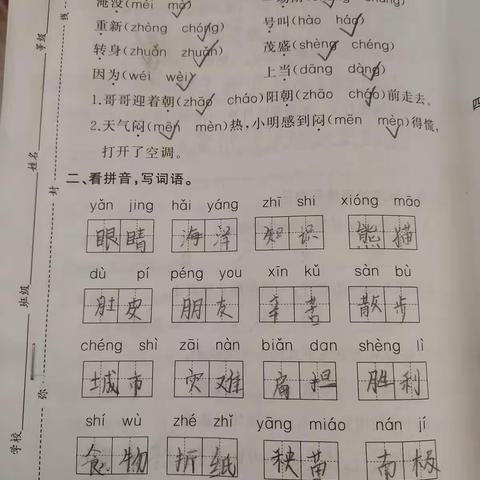 淹没(méi mò)
重新(zhòng chóng) 号叫(hào háo)
转身(zhuǎn zhuàn) 茂盛(shèng chéng)
因为(wéi wèi) 上当(dāng dàng)
1.哥哥迎着朝(zhāo cháo)阳朝(zhāo cháo)前走去。
2.天气闷(mēn mèn)热,小明感到闷(mēn mèn)得慌,
打开了空调。
二、看拼音,写词语。
yǎn jing hǎi yáng zhī shi xióng māo
眼睛 海洋 知识 熊猫
dù pí péng you xīn kǔ sàn bù
肚皮 朋友 辛苦 散步
chéng shì zāi nàn biǎn dan shèng lì
城市 灾难 扁担 胜利
shí wù zhé zhǐ yāng miáo nán jí
食物 折纸 秧苗 南极
学校
班级
姓名
等级
线
封
弥
四